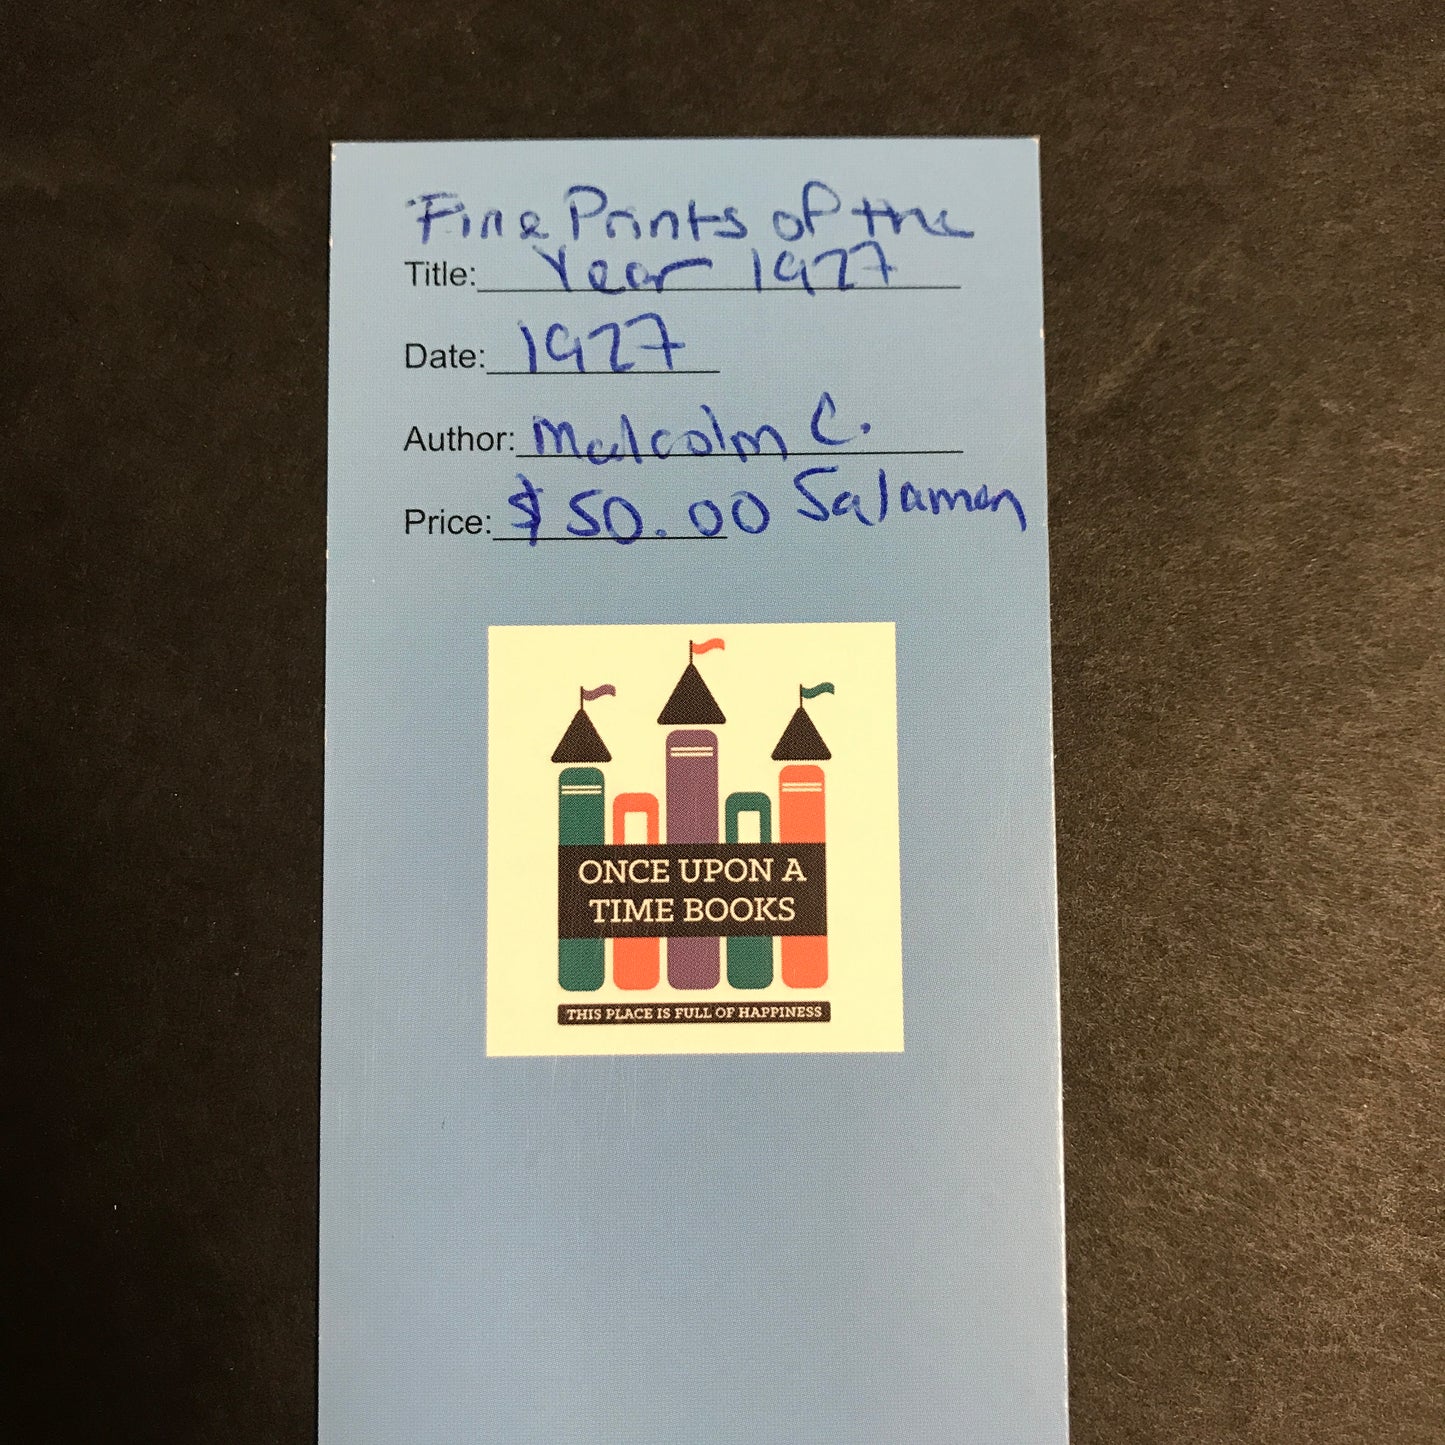 Fine Prints of the
Title: Year 1927
Date: 1927
Author: Malcolm C.
Salaman
Price: $50.00
ONCE UPON A
TIME BOOKS
THIS PLACE IS FULL OF HAPPINESS